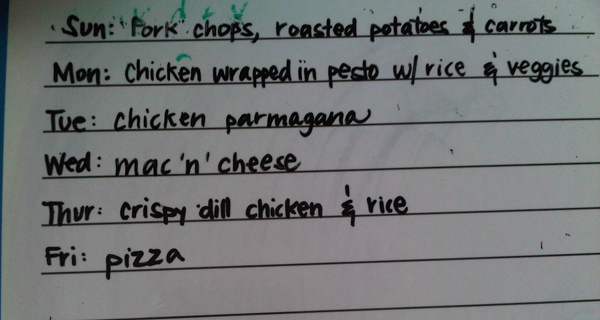 Sun: "Pork" chops, roasted potatoes & carrots
Mon: Chicken wrapped in pesto w/ rice & veggies
Tue: chicken parmagana
Wed: mac 'n' cheese
Thur: crispy dill chicken & rice
Fri: pizza